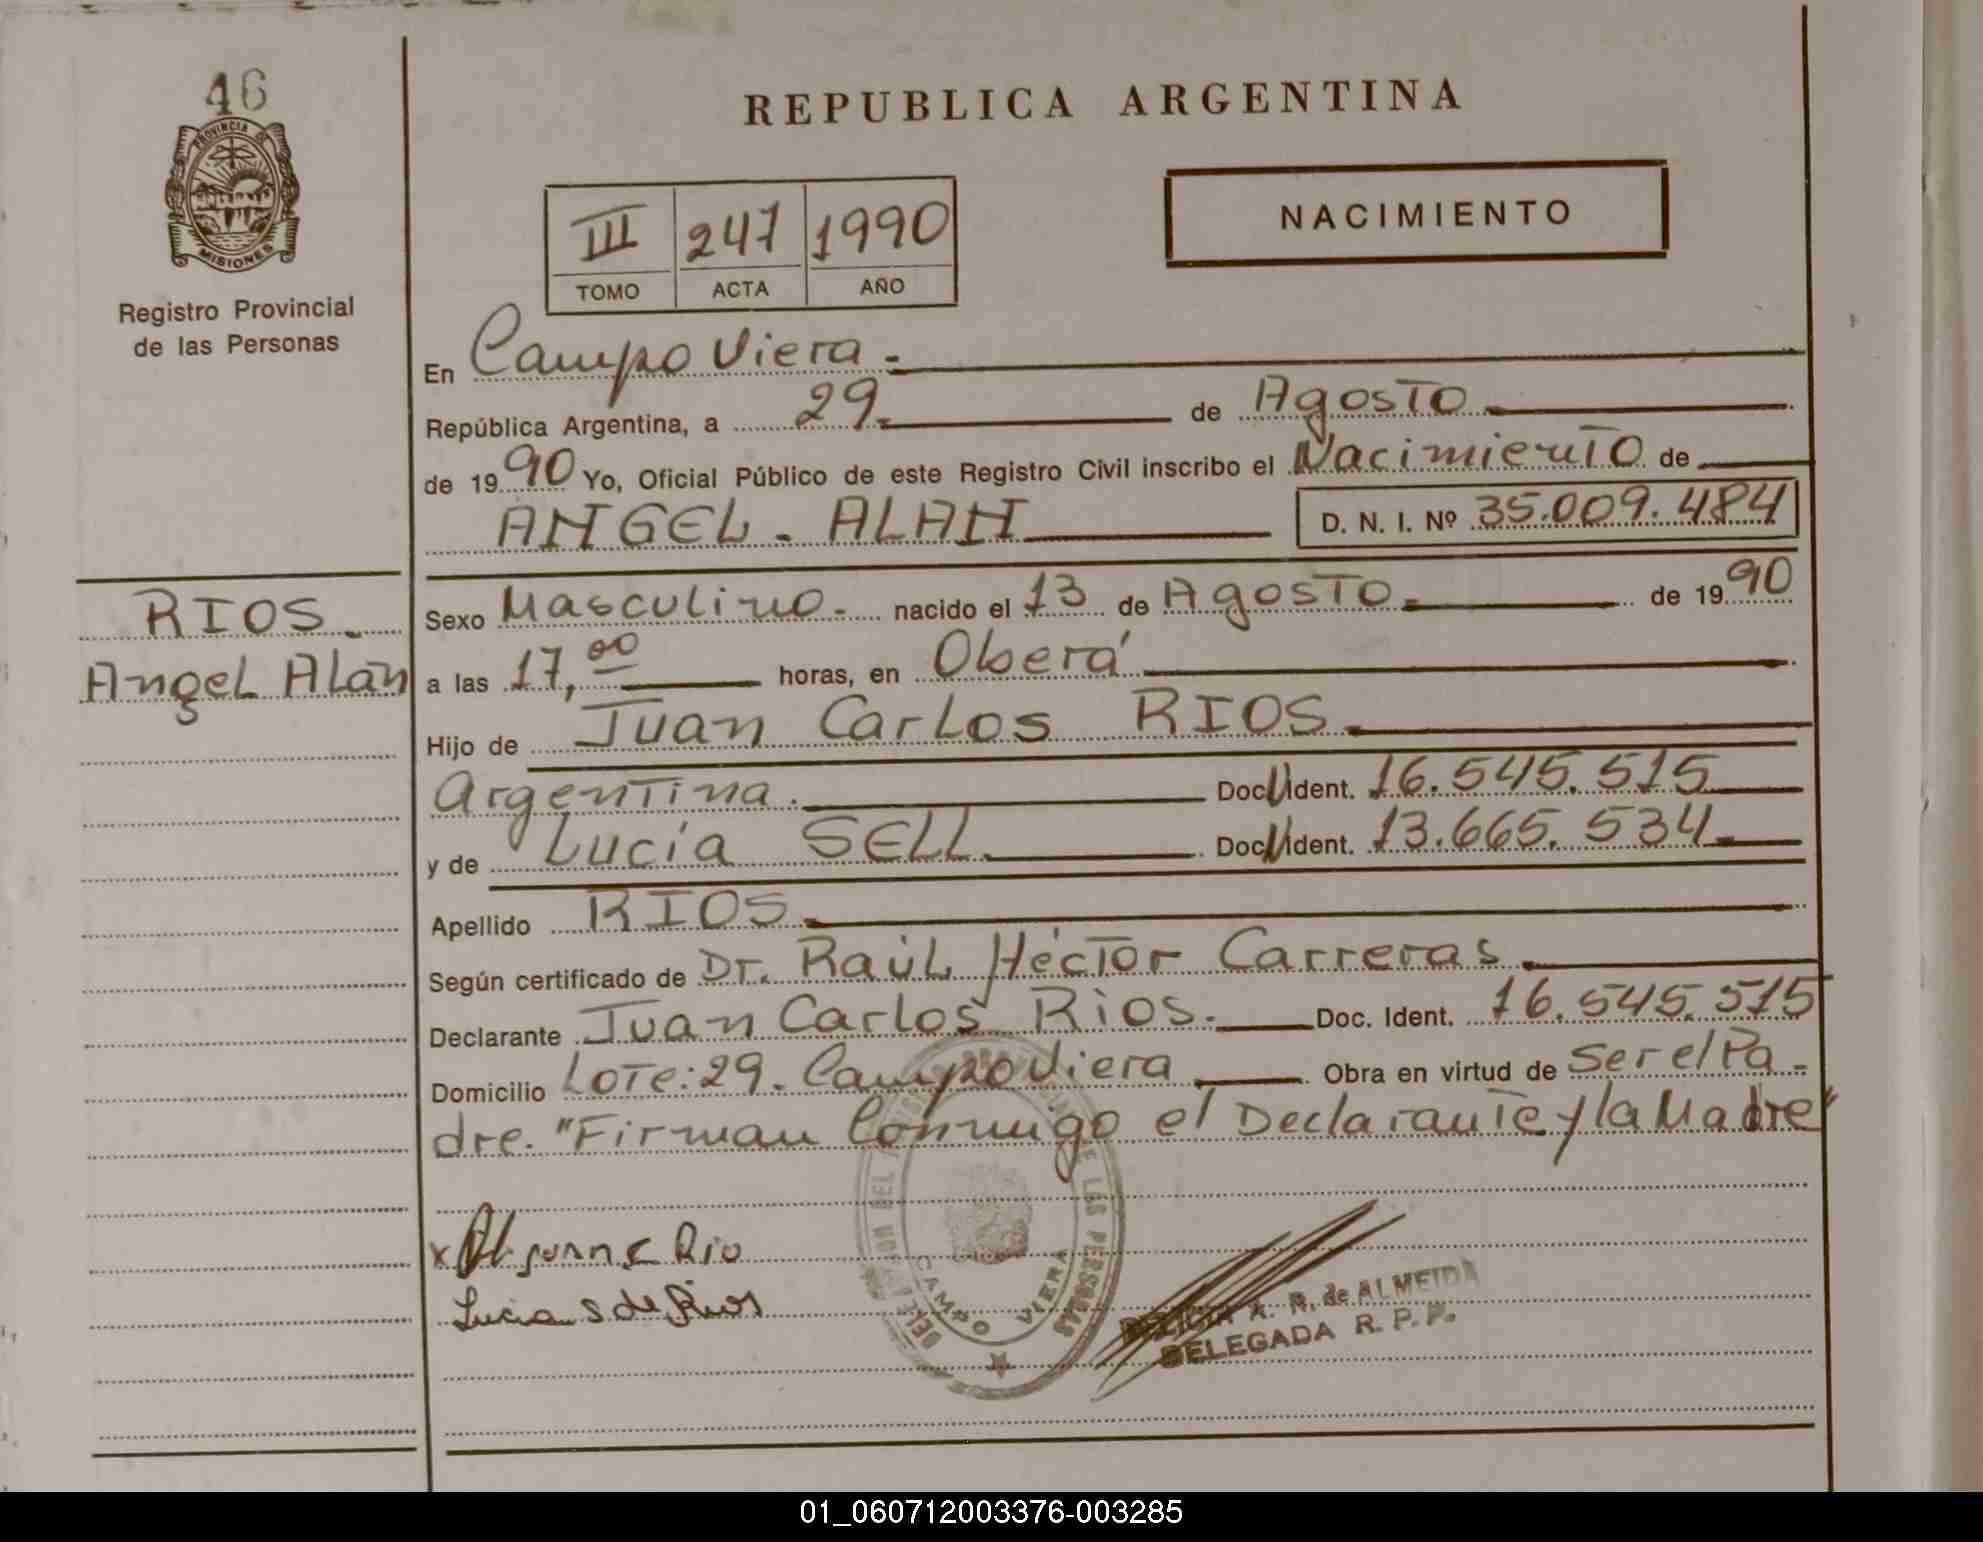 46
PROVINCIA DE
MISIONES
Registro Provincial
de las Personas
REPUBLICA ARGENTINA
III 247 1990
TOMO ACTA AÑO
NACIMIENTO
En Campo Viera.
República Argentina, a 29 de Agosto
de 1990 Yo, Oficial Público de este Registro Civil inscribo el Nacimiento de
ANGEL. ALAN D. N. I. Nº 35.009.484
RIOS.
Angel Alan
Sexo Masculino. nacido el 13 de Agosto. de 1990
a las 17,00 horas, en Oberá
Hijo de Juan Carlos RIOS.
Argentina. Doc U Ident. 16.545.515
y de Lucía SELL Doc U Ident. 13.665.534
Apellido RIOS
Según certificado de Dr. Raúl Héctor Carreras
Declarante Juan Carlos Rios. Doc. Ident. 16.545.515
Domicilio Lote: 29. Campo Viera Obra en virtud de Ser el Pa-
dre. "Firman Conmigo el Declarante y la Madre"
DE LAS PERSONAS
CAMPO VIERA
x Rio
Lucia S de Rios
A. R. de ALMEIDA
DELEGADA R. P. P.
01_060712003376-003285